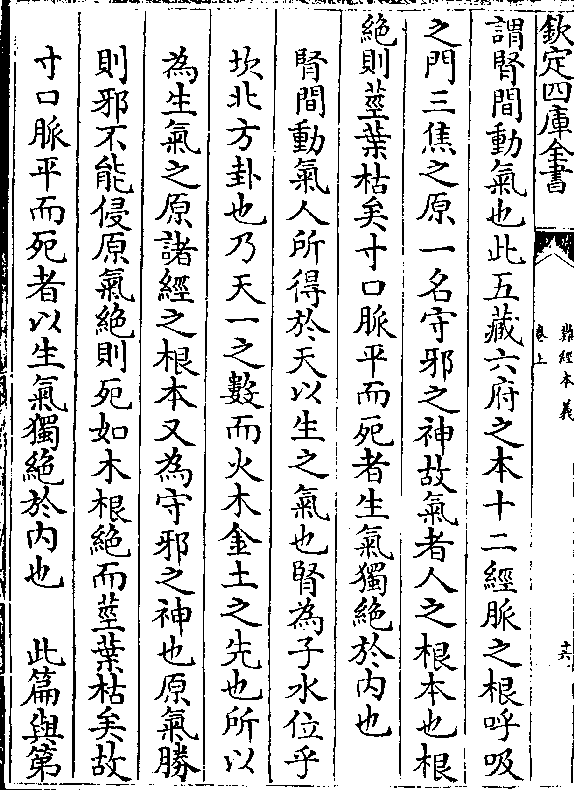 欽定四庫全書
難經本義
卷上
謂腎間動氣也此五藏六府之本十二經脈之根呼吸
之門三焦之原一名守邪之神故氣者人之根本也根
絶則莖葉枯矣寸口脈平而死者生氣獨絶於内也
腎間動氣人所得於天以生之氣也腎為子水位乎
坎北方卦也乃天一之數而火木金土之先也所以
為生氣之原諸經之根本又為守邪之神也原氣勝
則邪不能侵原氣絶則死如木根絶而莖葉枯矣故
寸口脈平而死者以生氣獨絶於内也 此篇與第